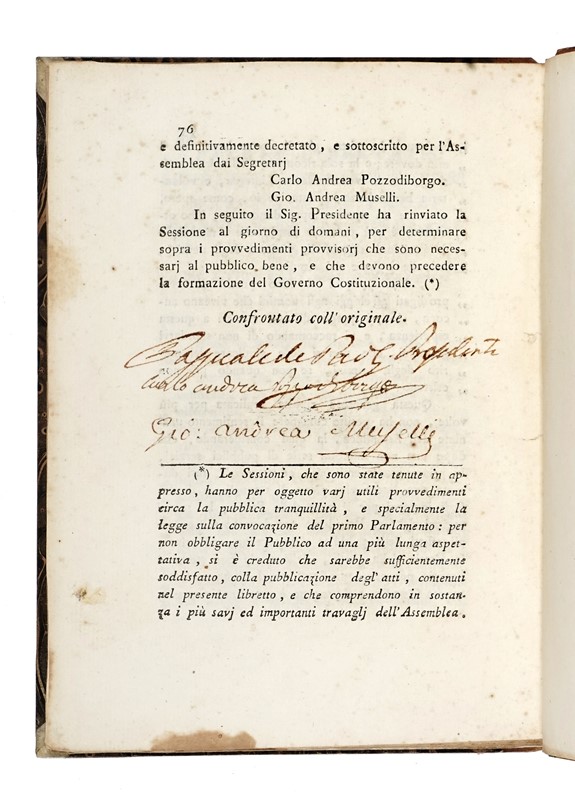 76
e definitivamente decretato , e sottoscritto per l'As-
semblea dai Segretarj
Carlo Andrea Pozzodiborgo.
Gio. Andrea Muselli.
In seguito il Sig. Presidente ha rinviato la
Sessione al giorno di domani , per determinare
sopra i provvedimenti provvisorj che sono neces-
sarj al pubblico bene , e che devono precedere
la formazione del Governo Costituzionale. (*)
Confrontato coll'originale.
Pasquale de Paoli Presidente
Carlo andrea Pozzodiborgo
Gio: andrea Muselli
(*) Le Sessioni , che sono state tenute in ap-
presso , hanno per oggetto varj utili provvedimenti
circa la pubblica tranquillità , e specialmente la
legge sulla convocazione del primo Parlamento : per
non obbligare il Pubblico ad una più lunga aspet-
tativa , si è creduto che sarebbe sufficientemente
soddisfatto , colla pubblicazione degl'atti , contenuti
nel presente libretto , e che comprendono in sostan-
za i più savj ed importanti travaglj dell'Assemblea .